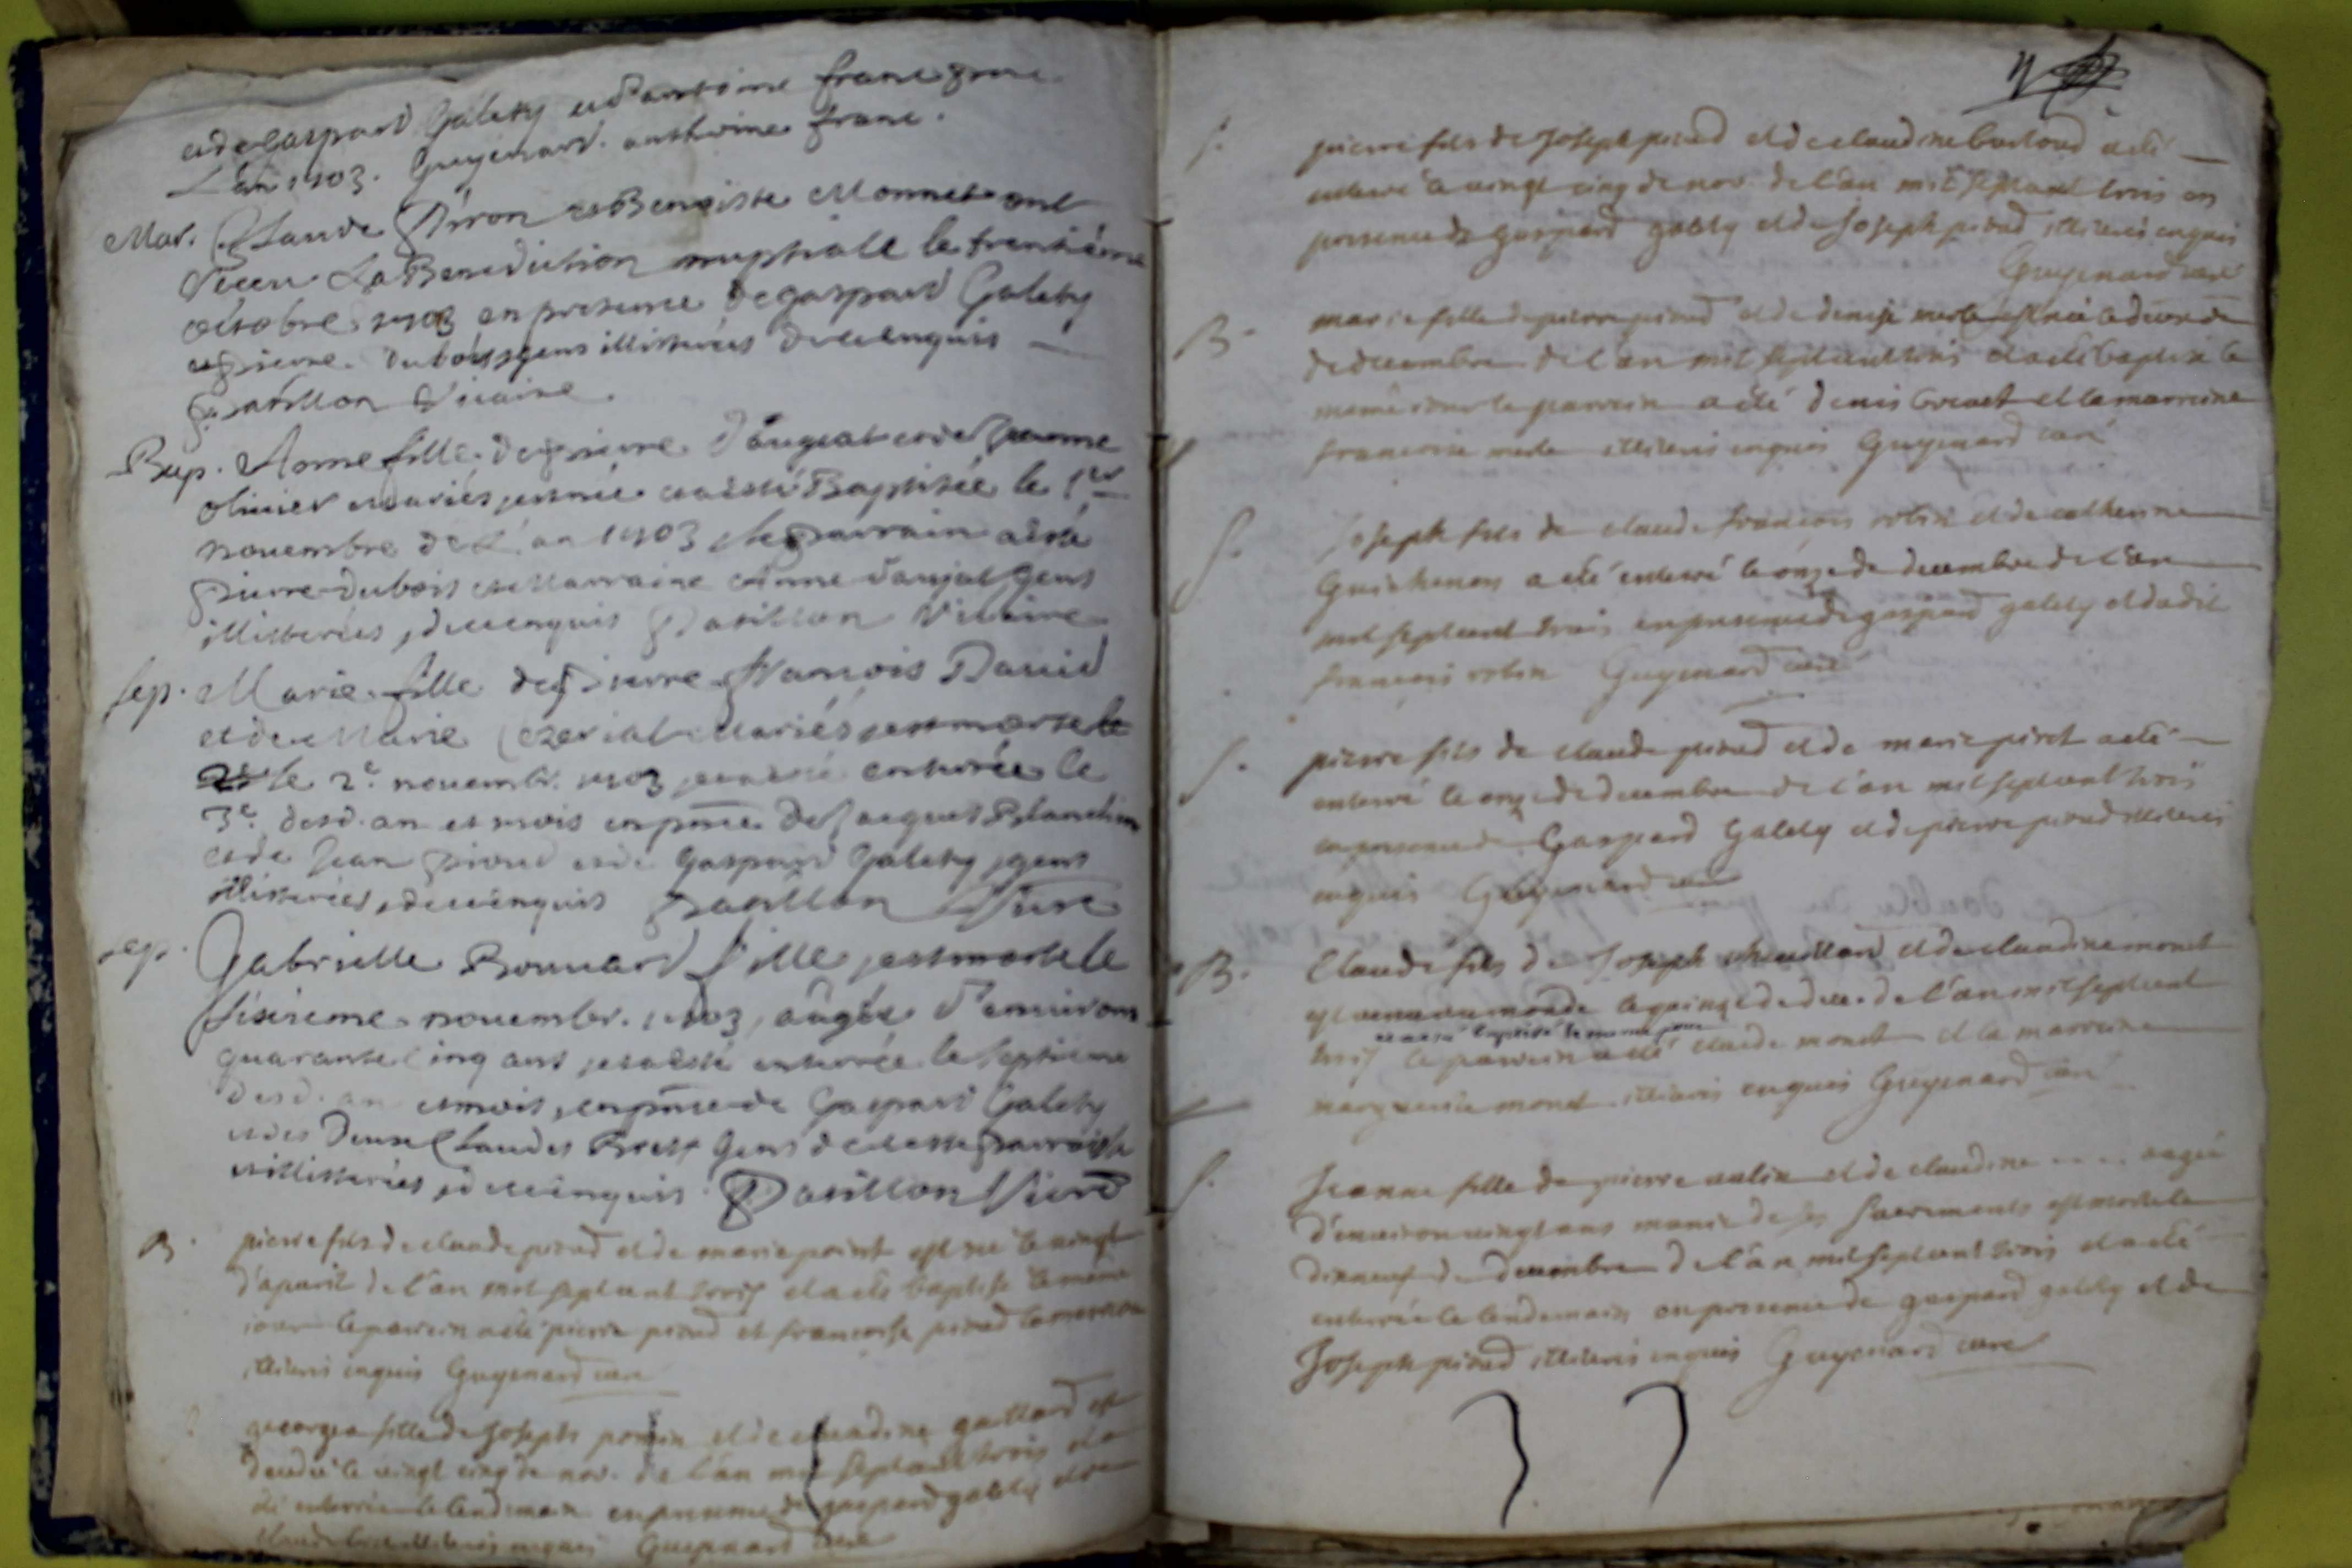 et de gaspard Galety et d'anthoine franc
L'an 1703. Guyenard. anthoine franc.
Mar. Claude Piron et Benoiste Monnet ont
Receu La Benediction nuptiale le trentième
octobre 1703 en presence de gaspard Galety
et pierre Dubois gens illitterés de ce enquis
Papillon Vicaire.
Bap. Anne fille de pierre Daujat et de
olivier mariés, est née et a esté Baptisée le 1er
novembre de L'an 1703 le parrain a esté
pierre Dubois et Marraine Anne Daujat gens
illitterés, de ce enquis Papillon Vicaire
sep. Marie fille de pierre françois David
et de Marie mariés, est morte le
le 2e novembr. 1703, et a esté enterrée le
3e desd. an et mois en pnce de Jacques Blanchon
et de Jean piroud et de Gaspard Galety, gens
illitterés, de ce enquis Papillon Vicre
sep. Gabrielle Bonnard fille, est morte le
sixieme novembr. 1703, âgée d'environ
quarante cinq ans, et a esté enterrée le septieme
desd. an et mois, en pnce de Gaspard Galety
et des Deux Claudes Brest Gens de cette parroisse
illitterés, de ce enquis. Papillon Vicre
B. pierre fils de claude piroud et de marie est né le vingt
d'apvril de l'an mil sept cent trois et a été baptisé le même
iour le parrein a été pierre piroud et francoise piroud la marreine
illiterés enquis Guyenard curé
fille de Joseph et de claudine gaillard est
decedée le vingt cinq de nov. de l'an mil sept cent trois et a
été enterrée le lendemain en presence de gaspard galety et de
claude illiterés enquis Guyenard curé
S. pierre fils de Joseph piroud et de claudine a été
enterré le vingt cinq de nov. de l'an mil sept cent trois en
presence de gaspard galety et de Joseph piroud illiterés enquis
Guyenard curé
B. marie fille de pierre piroud et de denise est née le
de decembre de l'an mil sept cent trois et a été baptisé le
même iour le parrein a été denis et la marreine
francoise illiterés enquis Guyenard curé
S. Joseph fils de claude françois robin et de catherine
Guichenon a été enterré le onze de decembre de l'an
mil sept cent trois en presence de gaspard galety et dudit
françois robin Guyenard curé
S. pierre fils de claude piroud et de marie a été
enterré le onze de decembre de l'an mil sept cent trois
en presence de Gaspard Galety et de pierre piroud illiterés
enquis Guyenard curé
B. Claude fils de Joseph et de claudine monet
est venu au monde le quinze de dec. de l'an mil sept cent
et a été baptisé le même jour
trois le parrein a été claude monet et la marreine
marguerite monet illiterés enquis Guyenard curé
S. Jeanne fille de pierre et de claudine .... aagée
d'environ vingt ans munie de ses sacrements est morte le
dixneuf de decembre de l'an mil sept cent trois et a été
enterrée le lendemain en presence de gaspard galety et de
Joseph piroud illiterés enquis Guyenard curé